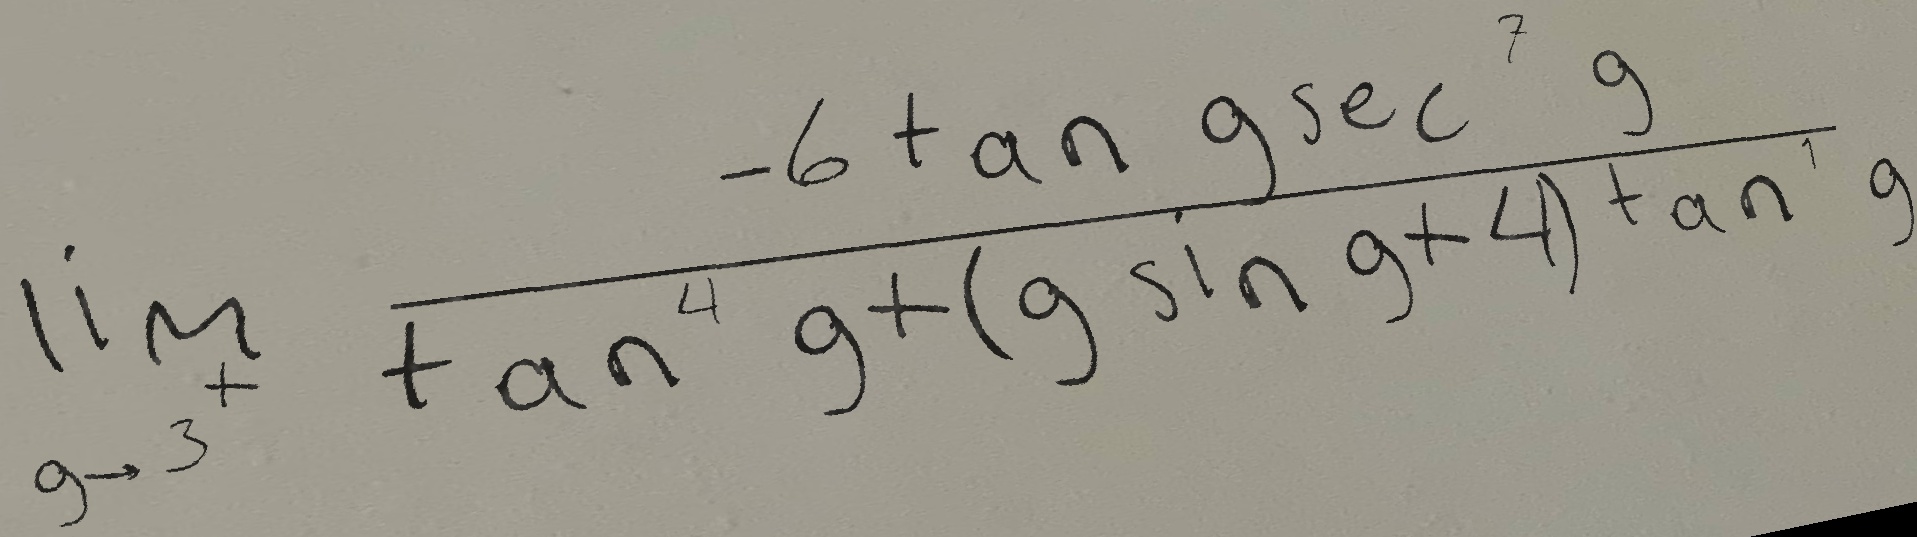 lim g→3⁺ (-6 tan g sec⁷ g) / (tan⁴ g + (g sin g + 4) tan¹ g)